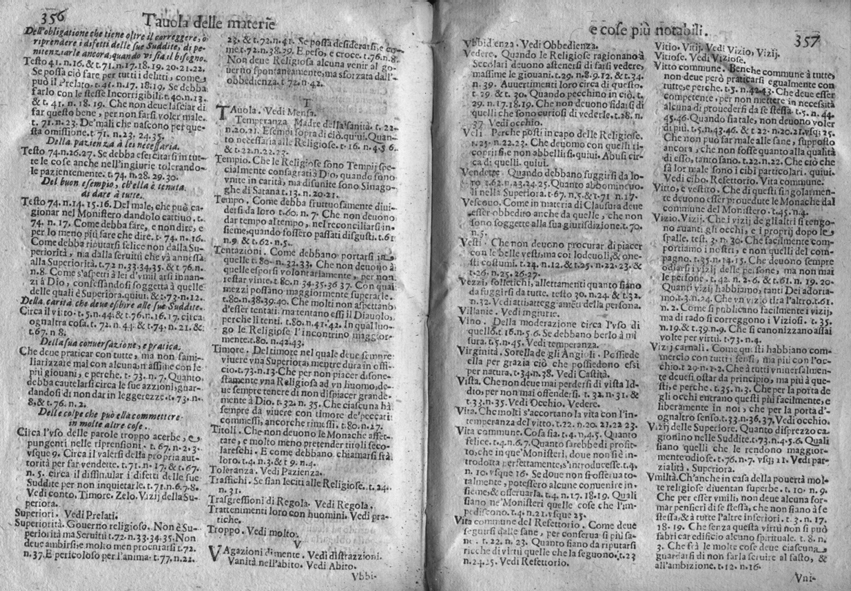 356
Tavola delle materie
Dell'obligatione che tiene oltre il correggere, ò
riprendere i difetti delle sue Suddite, di pe-
nitentiarle ancora, quando vi sia il bisogno.
Testo 41. n.16. & t.71. n.17.18.19.20.21.22.
Se possa ciò fare per tutti i delitti, come
può il Prelato. t.41. n.17.18.19. Se debba
farlo con le stesse Incorrigibili. t.40. n.13.
& t. 41. n. 18. 19. Che non deue lasciar di
far questo bene, per non farsi voler male.
t. 71. n.23. De' mali che nascono per que-
sta omissione. t.71. n.22. 24.35.
Della patienza à lei necessaria.
Testo 74. n.26.27. Se debba esercitarsi in tut-
te le cose anche nell'ingiurie tolerando-
le patientemente. t.74. n.28. 29.30.
Del buon esempio, ch'ella è tenuta
di dare à tutte.
Testo 74. n.14. 15.16. Del male, che può ca-
gionar nel Monistero dandolo cattiuo. t.
74. n. 17. Come debba fare, e non dire, e
per lo meno più fare che dire. t. 74. n.16.
Come debba riputarsi felice non dalla Su-
periorità, ma dalla seruitù che và annessa
alla Superiorità. t.72 n.33.34.35. & t.76.
n.8. Come s'aspetti à lei d'vmiliarsi innan-
zi à Dio, confessandosi soggetta à quelle
delle quali è Superiora. quiui. & t.73. n.12.
Della carità, che deue esser alle sue Suddite.
Circa il vito. t.5. n.44. & t.76. n.16. 17. circa
ogn'altra cosa. t.72. n.44. & t.74. n.21. &
t.67. n.8.
Della sua conuersatione, e pratica.
Che deue praticar con tutte, ma non fami-
liarizzare mai con alcuna, massime con le
più giouani, e perche. t.73. n. 7. Quanto
debba cautelarsi circa le sue azzioni guar-
dandosi di non dar in leggerezze. t.73. n.
8. & t.76. n.2.
Delle colpe che può ella commettere
in molte altre cose.
Circa l'vso delle parole troppo acerbe, e
pungenti nelle riprensioni. t. 67. n.2.3.
vsque 9. Circa il valersi della propria aut-
torità per far vendette. t.71. n.17. & t.67.
n.5. circa il dissimular i difetti delle sue
Suddite per non inquietarle. t.71. n.6.7.8.
Vedi conto. Timore. Zelo. Vizij della Su-
periora.
Superiori. Vedi Prelati.
Superiorità. Gouerno religioso. Non è Su-
periorità ma Seruitù t.72. n.33.34.35. Non
deue ambirsi, e molto men procurarsi t.72.
n.37. E pericoloso per l'anima. t.77. n.22.
23. & t.72. n.41. Se possa desiderarsi, e co-
me. t.72. n.38.39. E peso, e croce. t.76. n.8.
Non deue Religiosa alcuna venir al go-
uerno spontaneamente, ma sforzata dall'-
obbedienza. t.72. n.42.
T
Tauola. Vedi Mensa.
Temperanza. Madre della sanità. t.22.
n.20.21. Esempi sopra di ciò. quiui. Quan-
to necessaria alle Religiose. t.16. n.4.5.6.
& t.22. n.22.27.
Tempio. Che le Religiose sono Tempij spe-
cialmente consagrati à Dio, quando sono
vnite in carità; ma disunite sono Sinago-
ghe di Satana t.13. n.20.21.
Tempo. Come debba fruttuosamente diui-
dersi da loro t.60. n. 7. Che non deuono
dar tempo al tempo, nel reconciliarsi in-
sieme, quando fossero passati disgusti. t.61
n.9. & t.62. n.5.
Tentazioni. Come debbano portarsi in
quelle. t.80. n.33. Che non deuono à
quelle esporsi volontariamente, per non
restar vinte. t. 80. n. 34.35.36 37. Con quai
mezzi possano maggiormente superarle.
t.80. n.38.39.40. Che molti non aspettano
d'esser tentati, ma tentano essi il Diauolo,
perche li tenti. t.80. n.41.42. In qual luo-
go le Religiose l'incontrino maggior-
mente. t.80. n.42.43.
Timore. Del timore nel quale deue se'mpre
viuere vna Superiora, mentre dura in offi-
cio. t.73. n.13. Che per non piacer disone-
stamente vna Religiosa ad vn huomo, de-
ue sempre temere di non dispiacer grande-
mente à Dio. t.32. n.35. Che ciascuna hà
sempre da viuere con timore de' peccati
commessi, ancorche rimessi. t.80. n.17.
Titoli. Che non deuono le Monache affet-
tare, e molto meno pretender titoli seco-
lareschi. E come debbano chiamarsi frà
loro. t.4. n.3. & t.9. n.4.
Toleranza. Vedi Pazienza.
Traffichi. Se sian leciti alle Religiose. t.24.
n.31.
Trasgressioni di Regola. Vedi Regola.
Trattenimenti loro con huomini. Vedi pra-
tiche.
Troppo. Vedi molto.
V
Vagazioni di mente. Vedi distrazzioni.
Vanità nell'abito. Vedi Abito.
Vbbi-
e cose più notabili.
357
Vbbidienza. Vedi Obbedienza.
Vedere. Quando le Religiose ragionano à
Secolari deuono astenersi di farsi vedere,
massime le giouani. t.29. n.8.9.12. & t.34.
n. 39. Auuertimenti loro circa di questo.
t.29. n.30. Quanto pecchino in ciò. t.
29. n.17.18.19. Che non deuono fidarsi di
quelli che sono curiosi di vederle. t.18. n.
37. Vedi occhio.
Veli. Perche posti in capo delle Religiose.
t.25. n.22.23. Che deuono con questi co-
prirsi e non abbellirsi. quiui. Abusi cir-
ca di quelli. quiui.
Vendette. Quando debbano fuggirsi da lo-
ro. t.62. n.23.24.25. Quanto abbomineuo-
li nella Superiora. t.67. n.5. & t.71 n.17.
Vescouo. Come in materia di Clausura deue
esser obbedito anche da quelle, che non
sono soggette alla sua giurisdizione. t.70.
n.5.
Vesti. Che non deuono procurar di piacer
con le belle vesti, ma coi lodeuoli, & one-
sti costumi. t.24. n.12. & t.25. n.22.23. &
t.26. n.25. 26.27.
Vezzi, sofficienti, allettamenti quanto siano
da fuggirsi da tutte. testo 30. n.24. & t.32
n.32. Vedi attrattenze amèn della persona.
Villanie. Vedi ingiurie.
Vino. Della moderazione circa l'vso di
quello. t.16. n.5.6. Se debbano berlo à mi-
sura. t.5. n.45. Vedi temperanza.
Virginità, Sorella de gli Angioli. Possiede
ella per grazia ciò che possiedono essi
per natura. t.30. n.38. Vedi Castità.
Vista. Che non deue mai perdersi di vista Id-
dio, per non mai offenderli. t.32. n.31. &
t.33. n.35. Vedi Occhio. Vedere.
Vita. Che molti s'accortano la vita con l'in-
temperanza del vitto. t.22. n.20. 21.22 23
Vita commune. Cosa sia. t.4. n.4.5. Quanto
felice. t.4. n.6. 7. Quanto sarebbe di profit-
to, che in que' Monisteri, doue non si è in-
trodotta perfettamente, s'introducesse. t.4.
n. 10. vsque 16. Se doue non si osserua to-
talmente, potessero alcune conuenire in-
sieme, & osseruarla. t.4. n. 17.18.19. Quali
siano ne' Monisteri quelle cose che l'im-
pediscono. t.4. n.21. vsque 25.
Vita commune del Refettorio. Come deue
seguirsi dalle sane, per conseruarsi più sa-
ne. t. 22. n. 23. Quanto siano da riputarsi
ricche di virtù quelle che la seguono. t.23
n.24.25. Vedi Refettorio.
Vitio, Vitij. Vedi Vizio, Vizij.
Vitiose. Vedi Viziose.
Vitto commune. Benche commune à tutte,
non deue però praticarsi egualmente con
tutte, e perche. t.5. n.42.43. Che deue esser
competente, per non mettere in necessità
alcuna di prouedersi da se stessa. t.5. n. 44.
45.46. Quando sia tale, non deuono voler
di più. t.5. n.43.46. & t.22 n.20.21. vsq; 25.
Che non può far male alle sane, supposto
ancora, che non fosse quanto alla qualità
di esso, tanto sano. t.22. n.22. Che ciò che
fà lor male sono i cibi particolari. quiui.
Vedi cibo. Refettorio. Vita commune.
Vitto, e vestito. Che di questi singolarmente
deuono esser prouedute le Monache dal
commune del Monistero. t.45. n.4.
Vizio, Vizij. Che i vizij de gl'altri si tengono
auanti gli occhi, e i proprij dopo le
spalle. testo 3. n. 30. Che facilmente com-
portiamo i nostri, e non quelli del com-
pagno. t.35. n.14.15. Che deuono sempre
odiarsi i vizij delle persone, ma non mai
le persone. t. 42. n. 2.6. & t.61. n. 19. 20.
Quali vizij habbiamo, tanti Dei adoria-
mo. t.3. n.24. Che vn vizio tira l'altro. t.61.
n.2. Come si publicano facilmente i vizij,
ma di rado si correggono i Viziosi. t.35.
n.19. & t.39. n.9. Che si canonizzano assai
volte per virtù. t.73. n.4.
Vizij carnali. Come questi habbiano com-
mercio con tutti i sensi, ma più con l'oc-
chio. t 29. n.1.2. Che à tutti vniuersalmen-
te deuesi ostar da principio, ma più à que-
sti, e perche. t.35. n.2. Che per la porta de
gli occhi entrano questi più facilmente, e
liberamente in noi, che per la porta d'o-
gnaltro senso. t.33. n.36.37. Vedi occhio.
Vizij delle Superiore. Quanto disprezzo ca-
gionino nelle Suddite. t.73. n.4.5.6. Quali
siano quelli che le rendono maggior-
mente odiose. t.76. n.7. vsq; 21. Vedi par-
zialità. Superiora.
Vmiltà. Ch'anche in casa della pouertà mol-
te religiose diuentan superbe. t. 10. n. 9.
Che per esser vmili, non deue alcuna for-
mar pensieri di se stessa, che non siano à se
stessa, & à tutte l'altre inferiori. t.3. n. 17.
18. 19. Che senza questa virtù non si può
fabricar edificio alcuno spirituale. t. 8. n.
3. Che frà le molte cose deue ciascuna
guardarsi di non farla seruire al fasto, &
all'ambizione. t.12. n.16.
Vni-